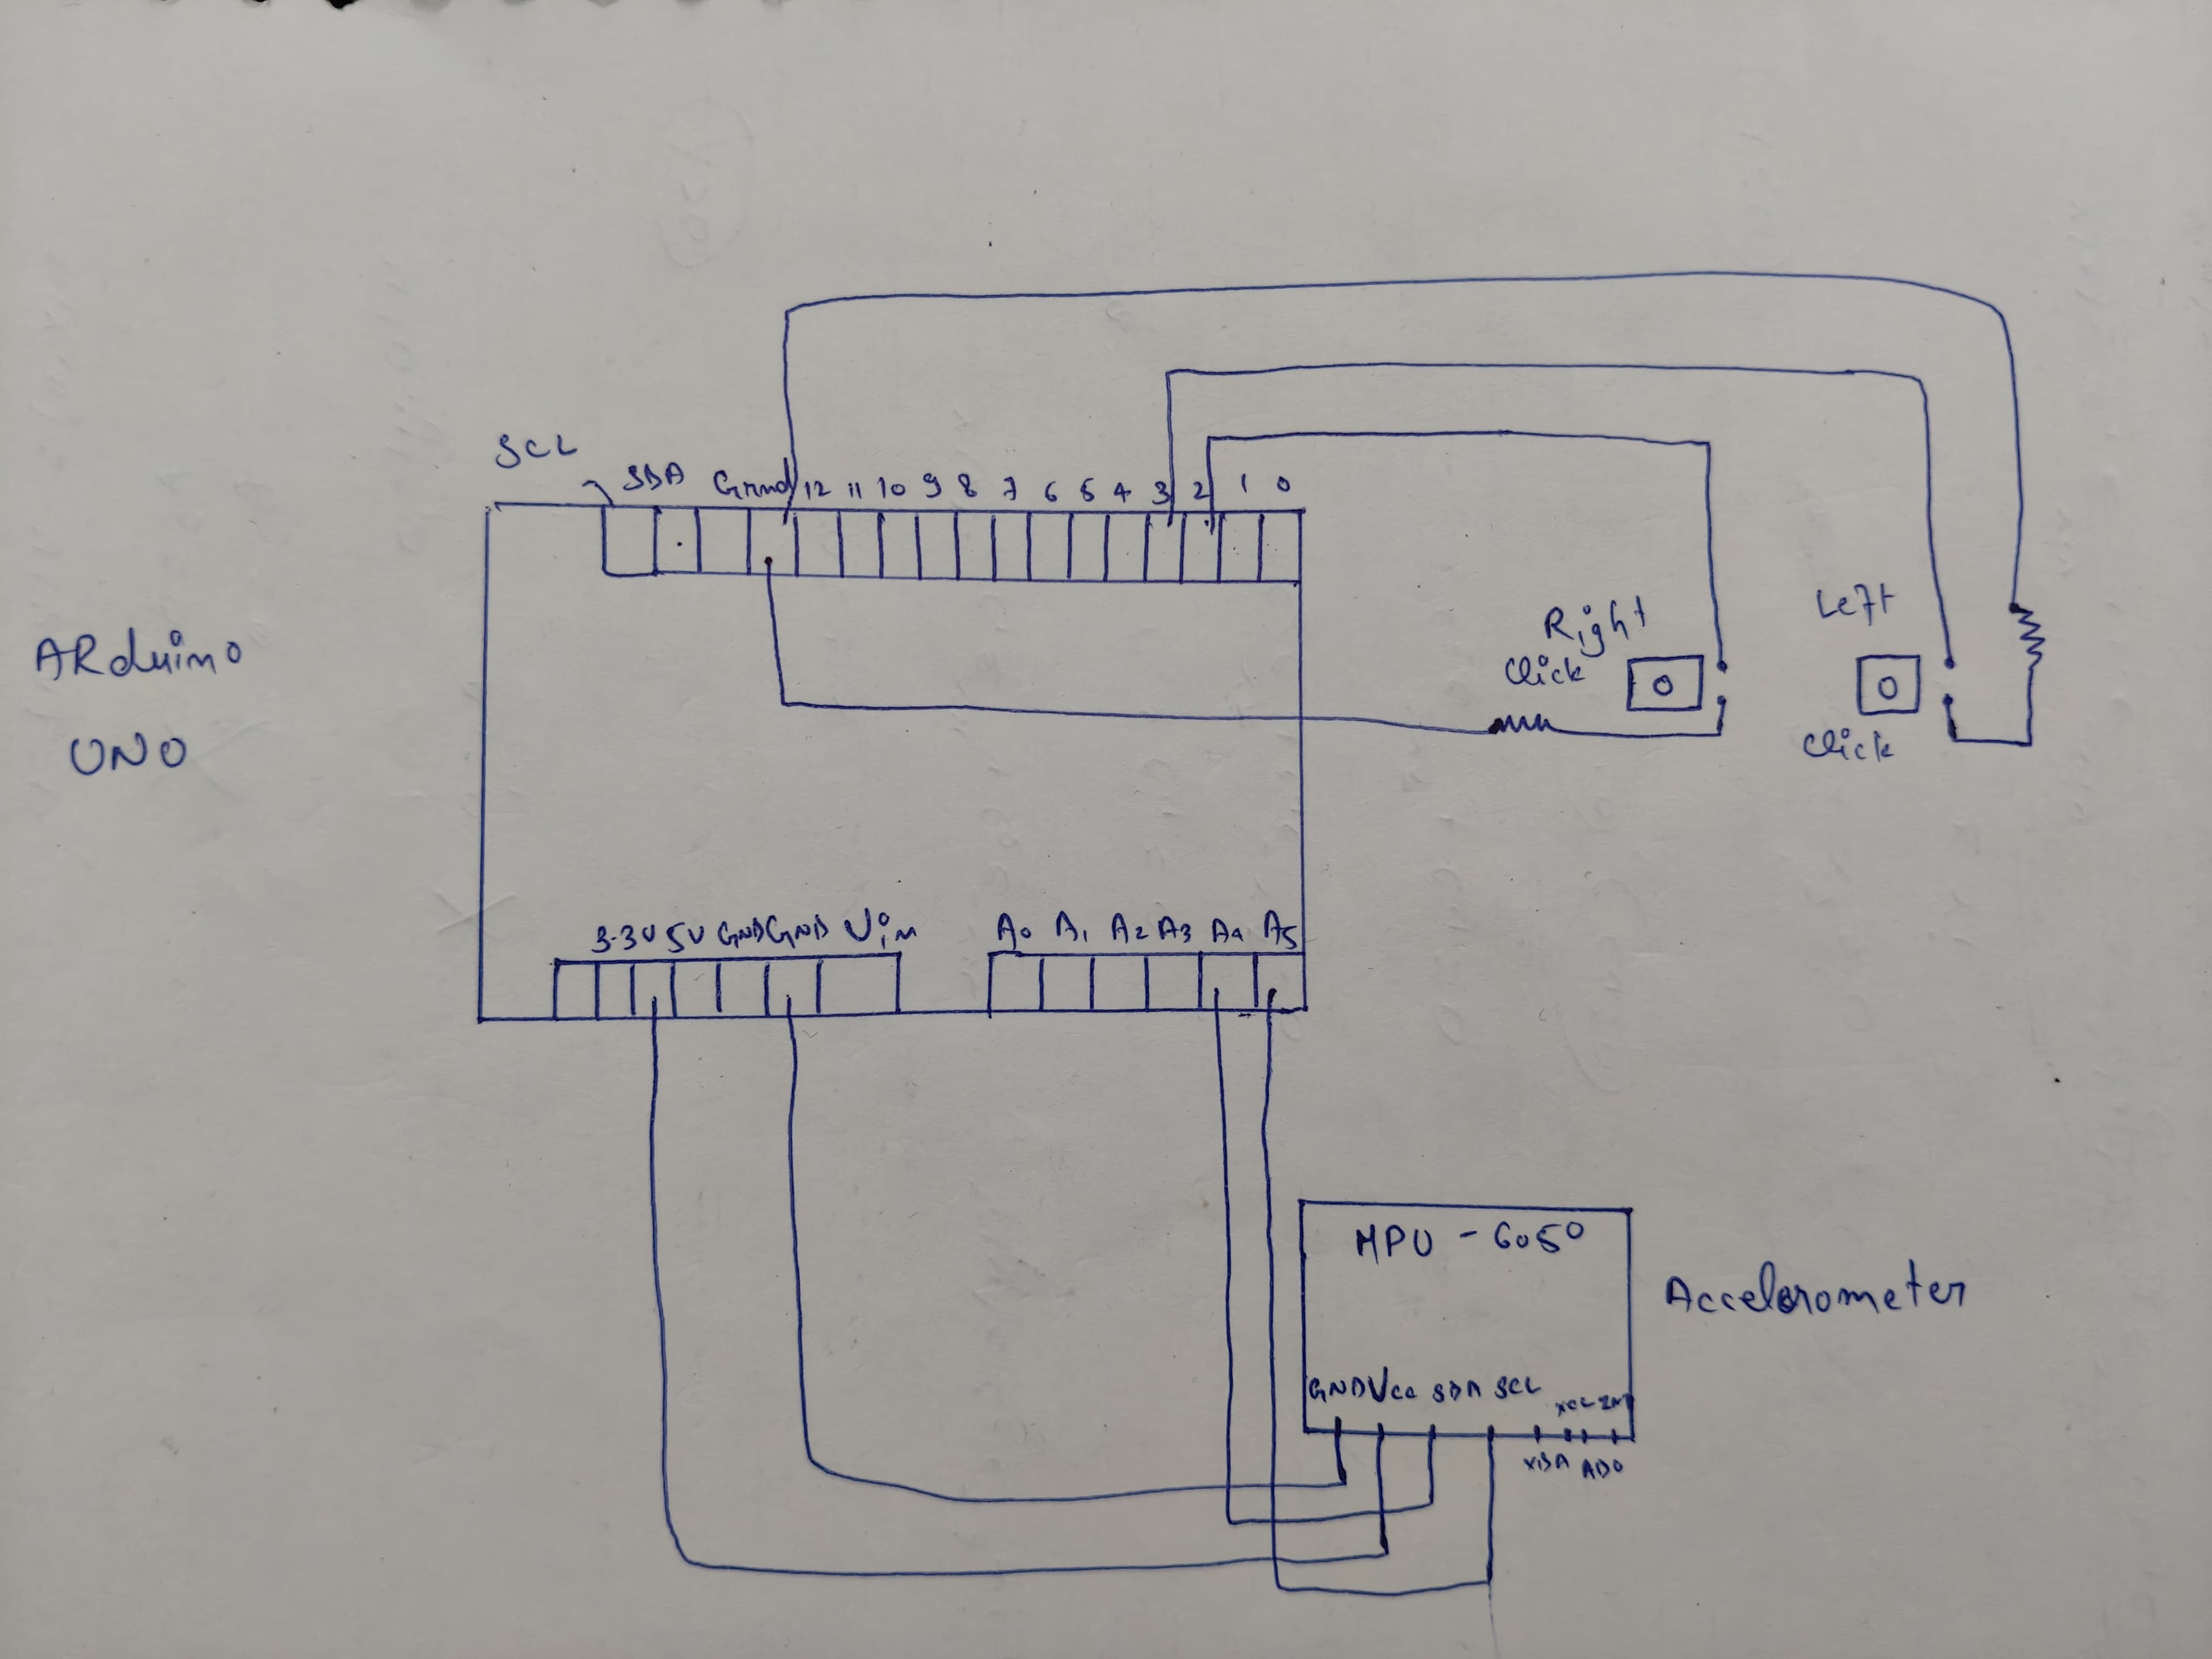 SCL
SDA Grnd 12 11 10 9 8 7 6 5 4 3 2 1 0
ARduino
UNO
Right
Click
Left
Click
3.3V 5V GND GND Vin
A0 A1 A2 A3 A4 A5
MPU - 6050
Accelerometer
GND Vcc SDA SCL
XCL INT
XDA ADO